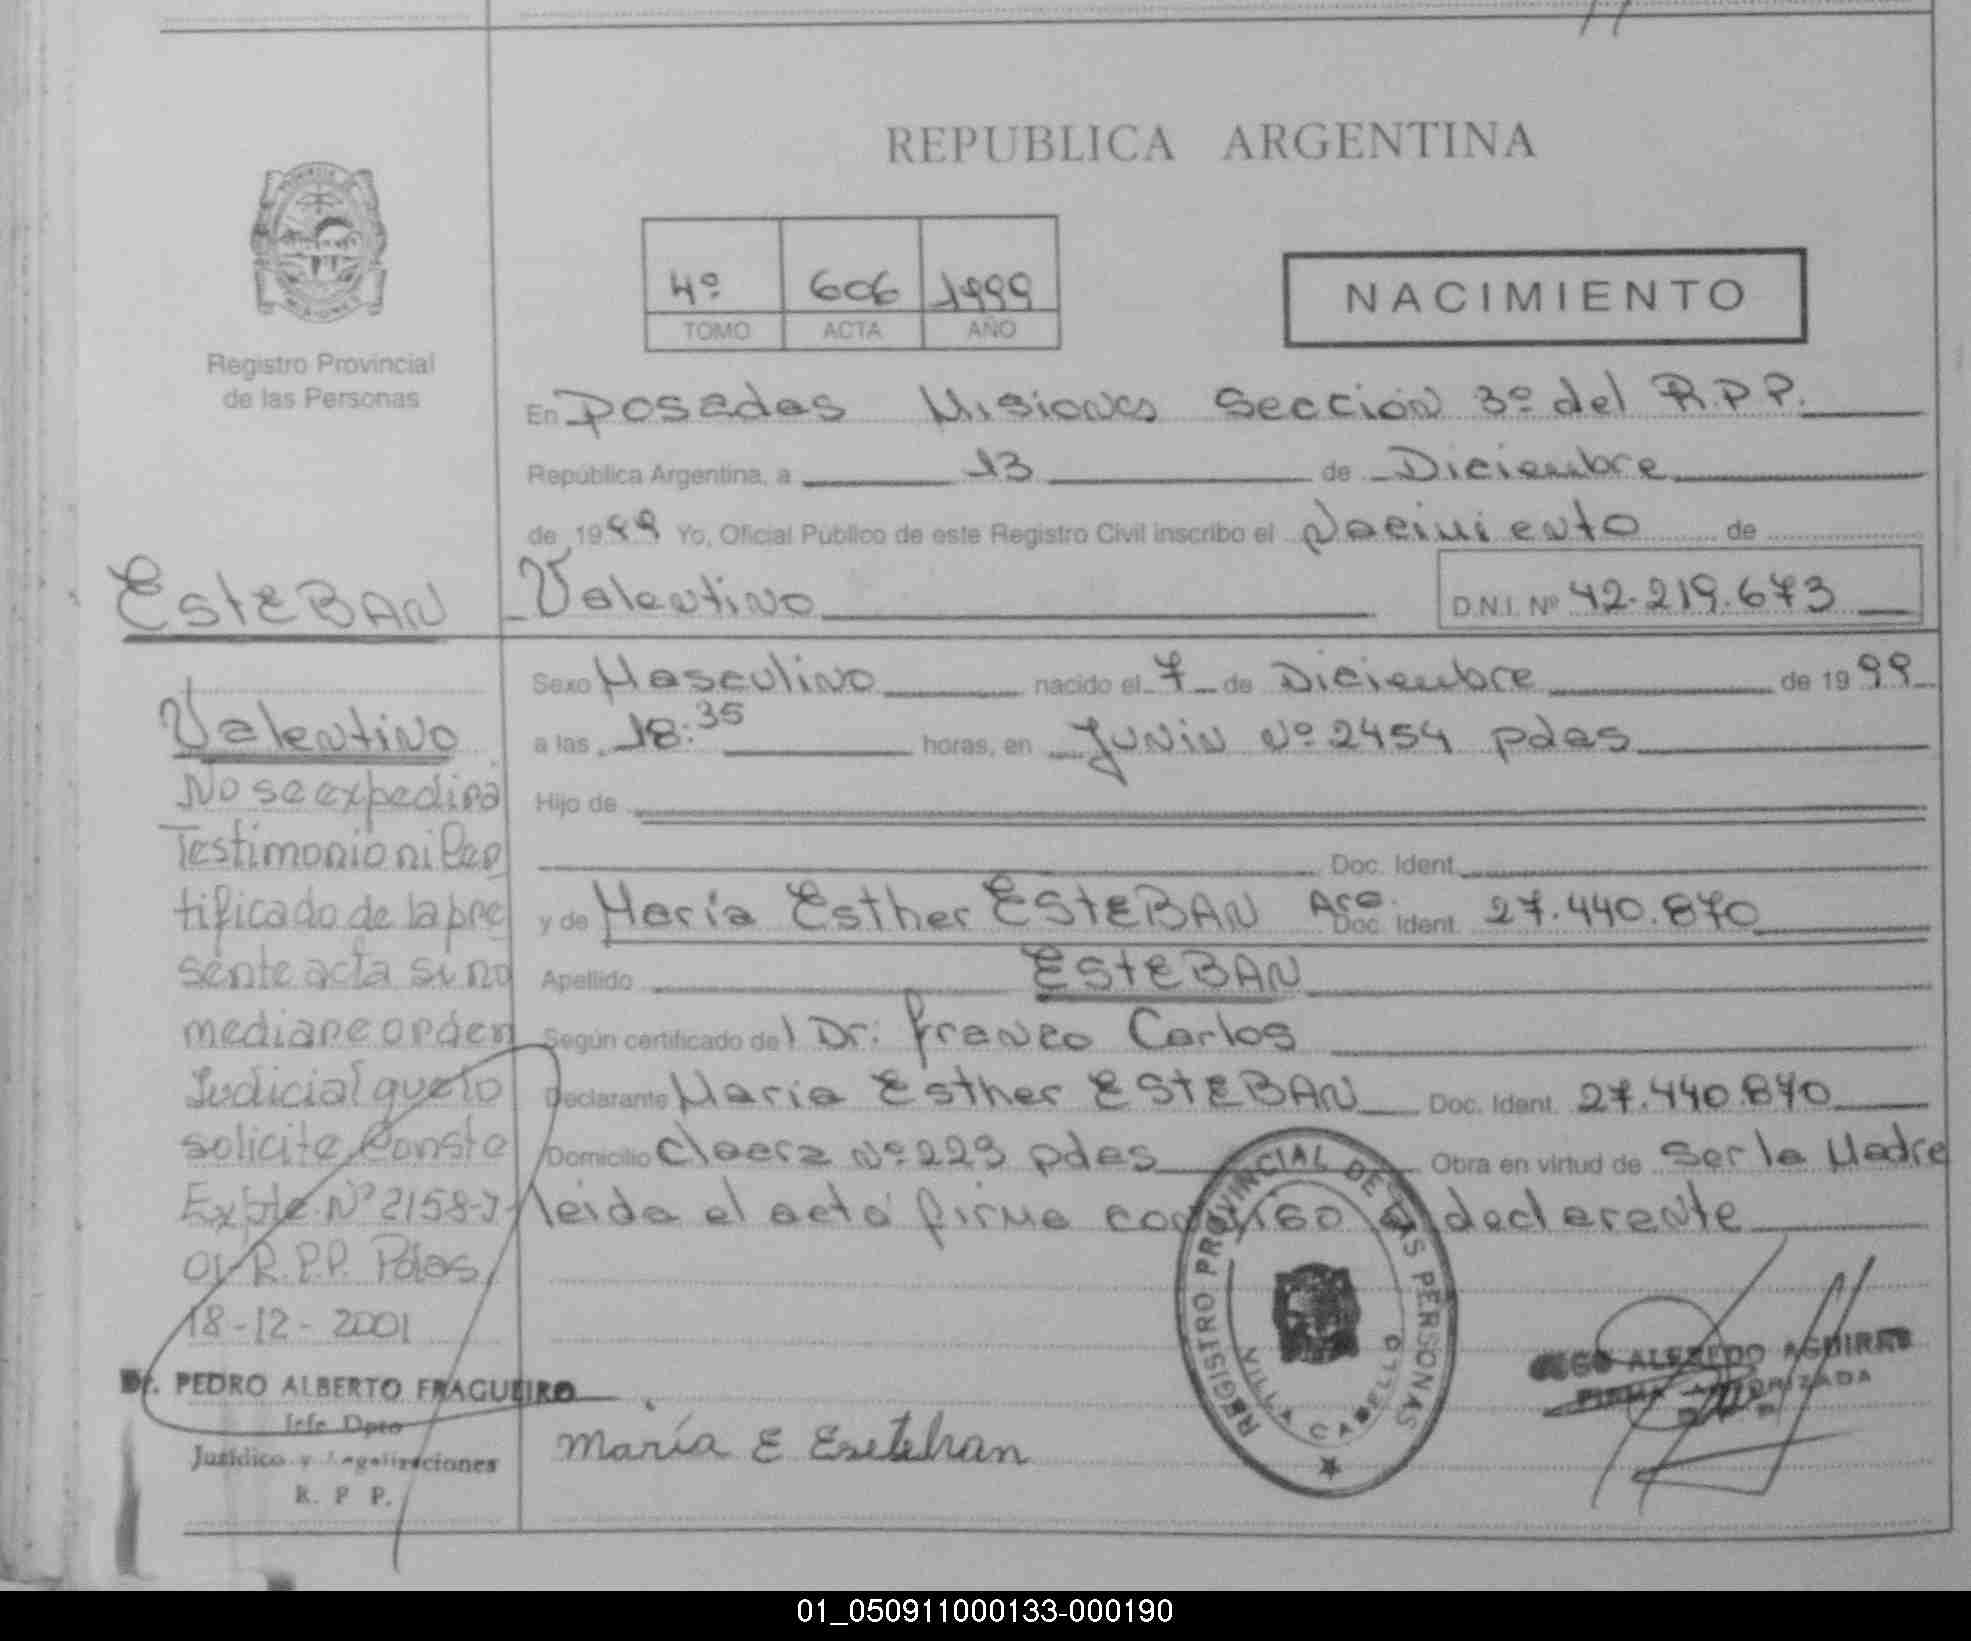 REPUBLICA ARGENTINA
4º 606 1999
TOMO ACTA AÑO
NACIMIENTO
Registro Provincial
de las Personas
En Posadas Misiones Sección 3º del R.P.P.
República Argentina, a 13 de Diciembre
de 1999 Yo, Oficial Público de este Registro Civil inscribo el Nacimiento de
Valentino D.N.I. Nº 42.219.673
Sexo Masculino nacido el 7 de Diciembre de 1999
a las 18:35 horas, en Junin Nº 2454 pdas
Hijo de
Doc. Ident.
y de María Esther ESTEBAN Arg. Doc. Ident. 27.440.870
Apellido ESTEBAN
Según certificado del Dr: Franco Carlos
Declarante Maria Esther ESTEBAN Doc. Ident. 27.440.870
Domicilio Nº 223 pdas Obra en virtud de Ser la Madre
leida el acta firma conmigo la declarante
ESTEBAN
Valentino
No se expedirá
Testimonio ni Cer
tificado de la pre
sente acta si no
mediare orden
Judicial que lo
solicite Conste
Expte. Nº 2158-J-
01-R.P.P. Pdas
18-12-2001
Dr. PEDRO ALBERTO FRAGUEIRO
Jefe Dpto
Jurídico y Legalizaciones
R. P. P.
María E Esetehan
REGISTRO PROVINCIAL DE LAS PERSONAS
VILLA CABELLO
ALFREDO AGUIRRE
FIRMA AUTORIZADA
01_050911000133-000190